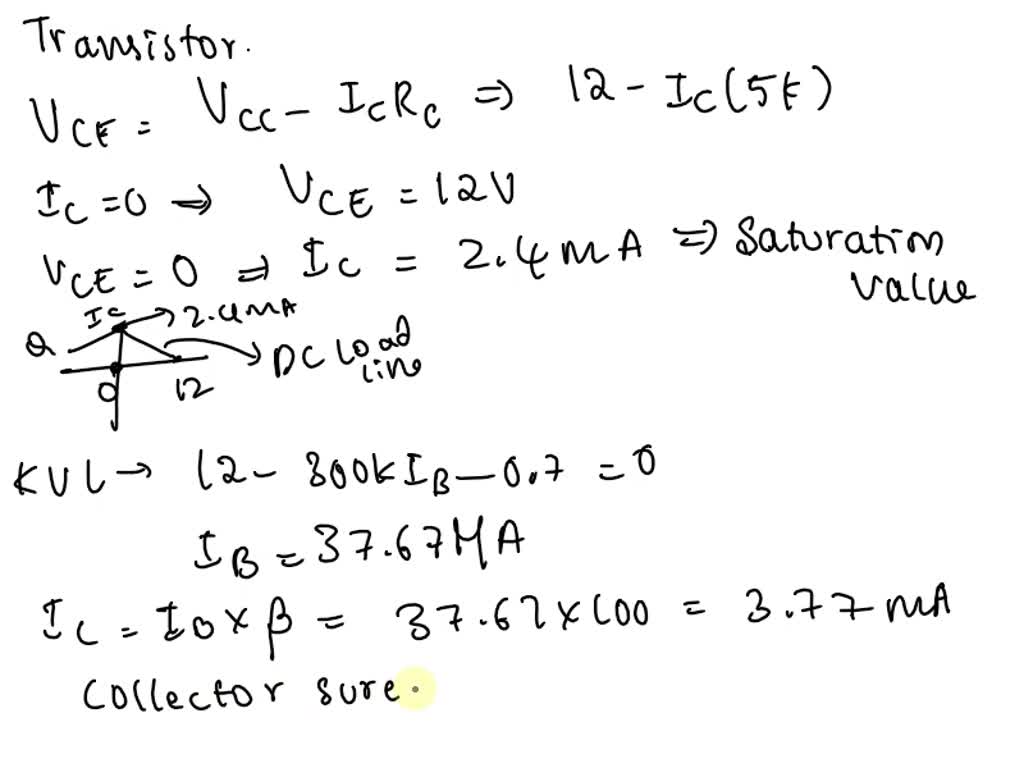 Transistor.
VCE = VCC - ICRC => 12 - IC(5k)
IC = 0 => VCE = 12V
VCE = 0 => IC = 2.4mA => Saturation
value
IC → 2.4mA
Q
DC Load
line
0 12
KVL → 12 - 300kIB - 0.7 = 0
IB = 37.67MA
IC = I0 x β = 37.67 x 100 = 3.77mA
Collector sure